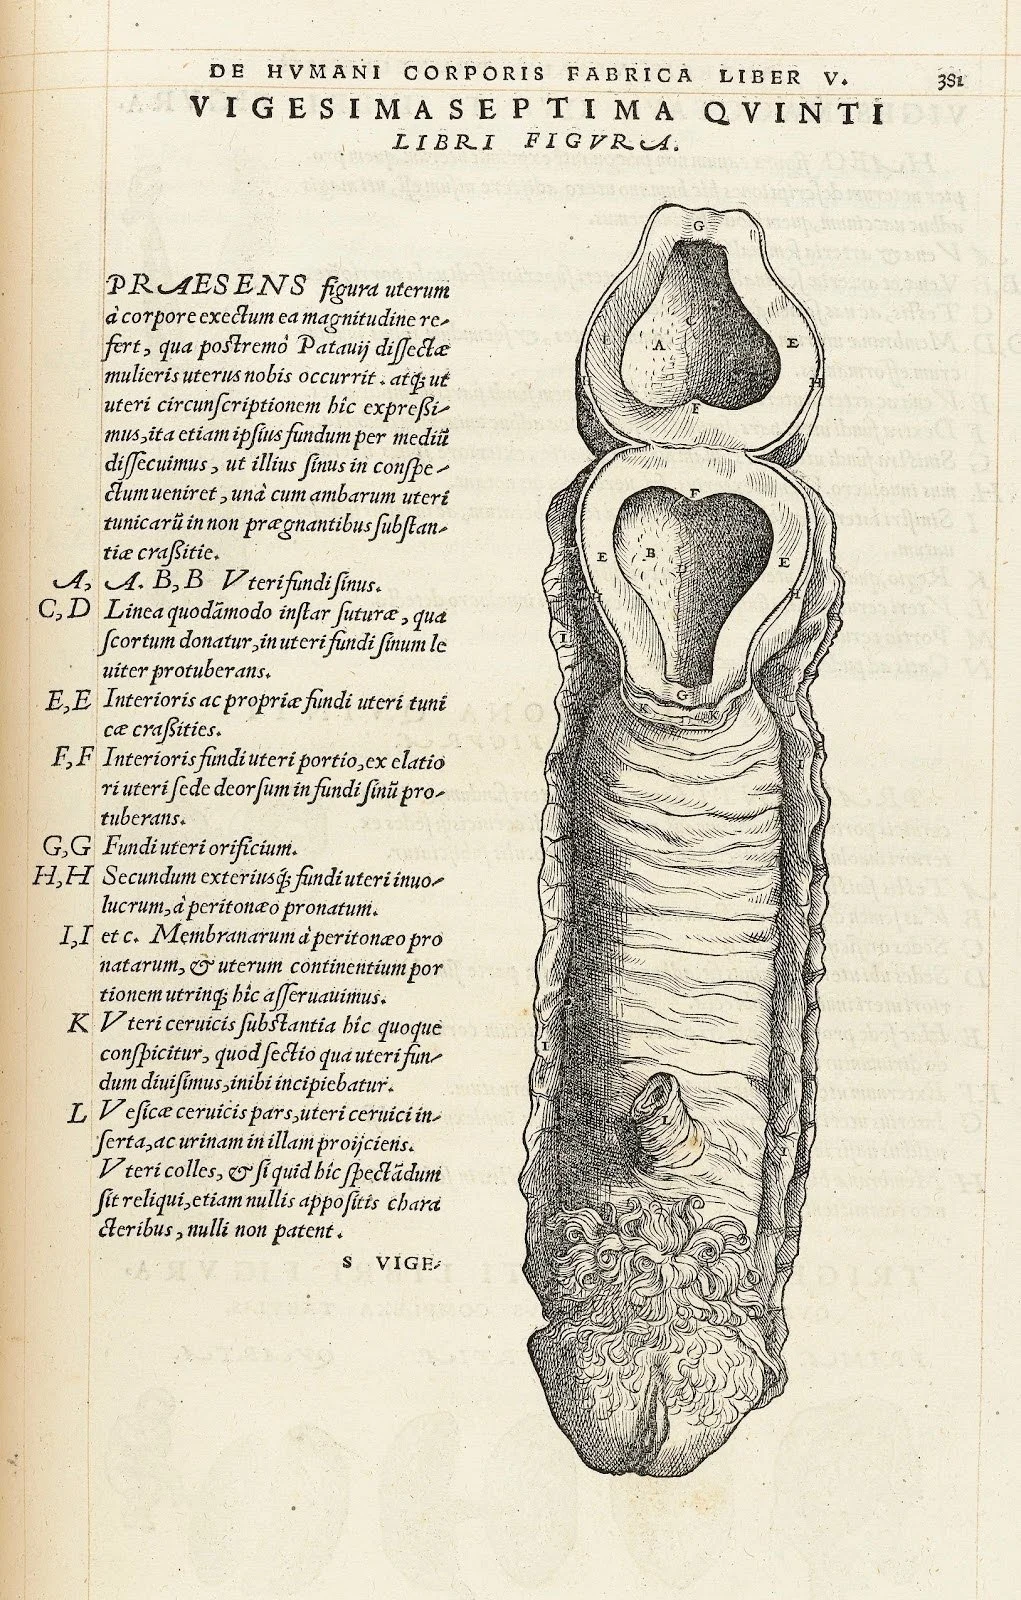 DE HVMANI CORPORIS FABRICA LIBER V. 381
VIGESIMASEPTIMA QVINTI
LIBRI FIGVRA.
G
C
E A E
H
F
F
E B E
H H
I
G
K K
I
I
L
I
PRAESENS figura uterum
à corpore exectum ea magnitudine re-
fert, qua postremò Patauij dissectæ
mulieris uterus nobis occurrit. atq; ut
uteri circunscriptionem hîc expreßi-
mus, ita etiam ipsius fundum per mediũ
dissecuimus, ut illius sinus in conspe-
ctum ueniret, unà cum ambarum uteri
tunicarũ in non prægnantibus substan-
tiæ craßitie.
A, A. B, B Vteri fundi sinus.
C, D Linea quodãmodo instar suturæ, qua
scortum donatur, in uteri fundi sinum le
uiter protuberans.
E, E Interioris ac propriæ fundi uteri tuni
cæ craßities.
F, F Interioris fundi uteri portio, ex elatio
ri uteri sede deorsum in fundi sinũ pro-
tuberans.
G, G Fundi uteri orificium.
H, H Secundum exteriusq́; fundi uteri inuo-
lucrum, à peritonæo pronatum.
I, I et c. Membranarum à peritonæo pro
natarum, & uterum continentium por
tionem utrinq; hîc asseruauimus.
K Vteri ceruicis substantia hîc quoque
conspicitur, quod sectio qua uteri fun-
dum diuisimus, inibi incipiebatur.
L Vesicæ ceruicis pars, uteri ceruici in-
serta, ac urinam in illam proijciens.
Vteri colles, & si quid hîc spectãdum
sit reliqui, etiam nullis appositis chara
cteribus, nulli non patent.
S VIGE-